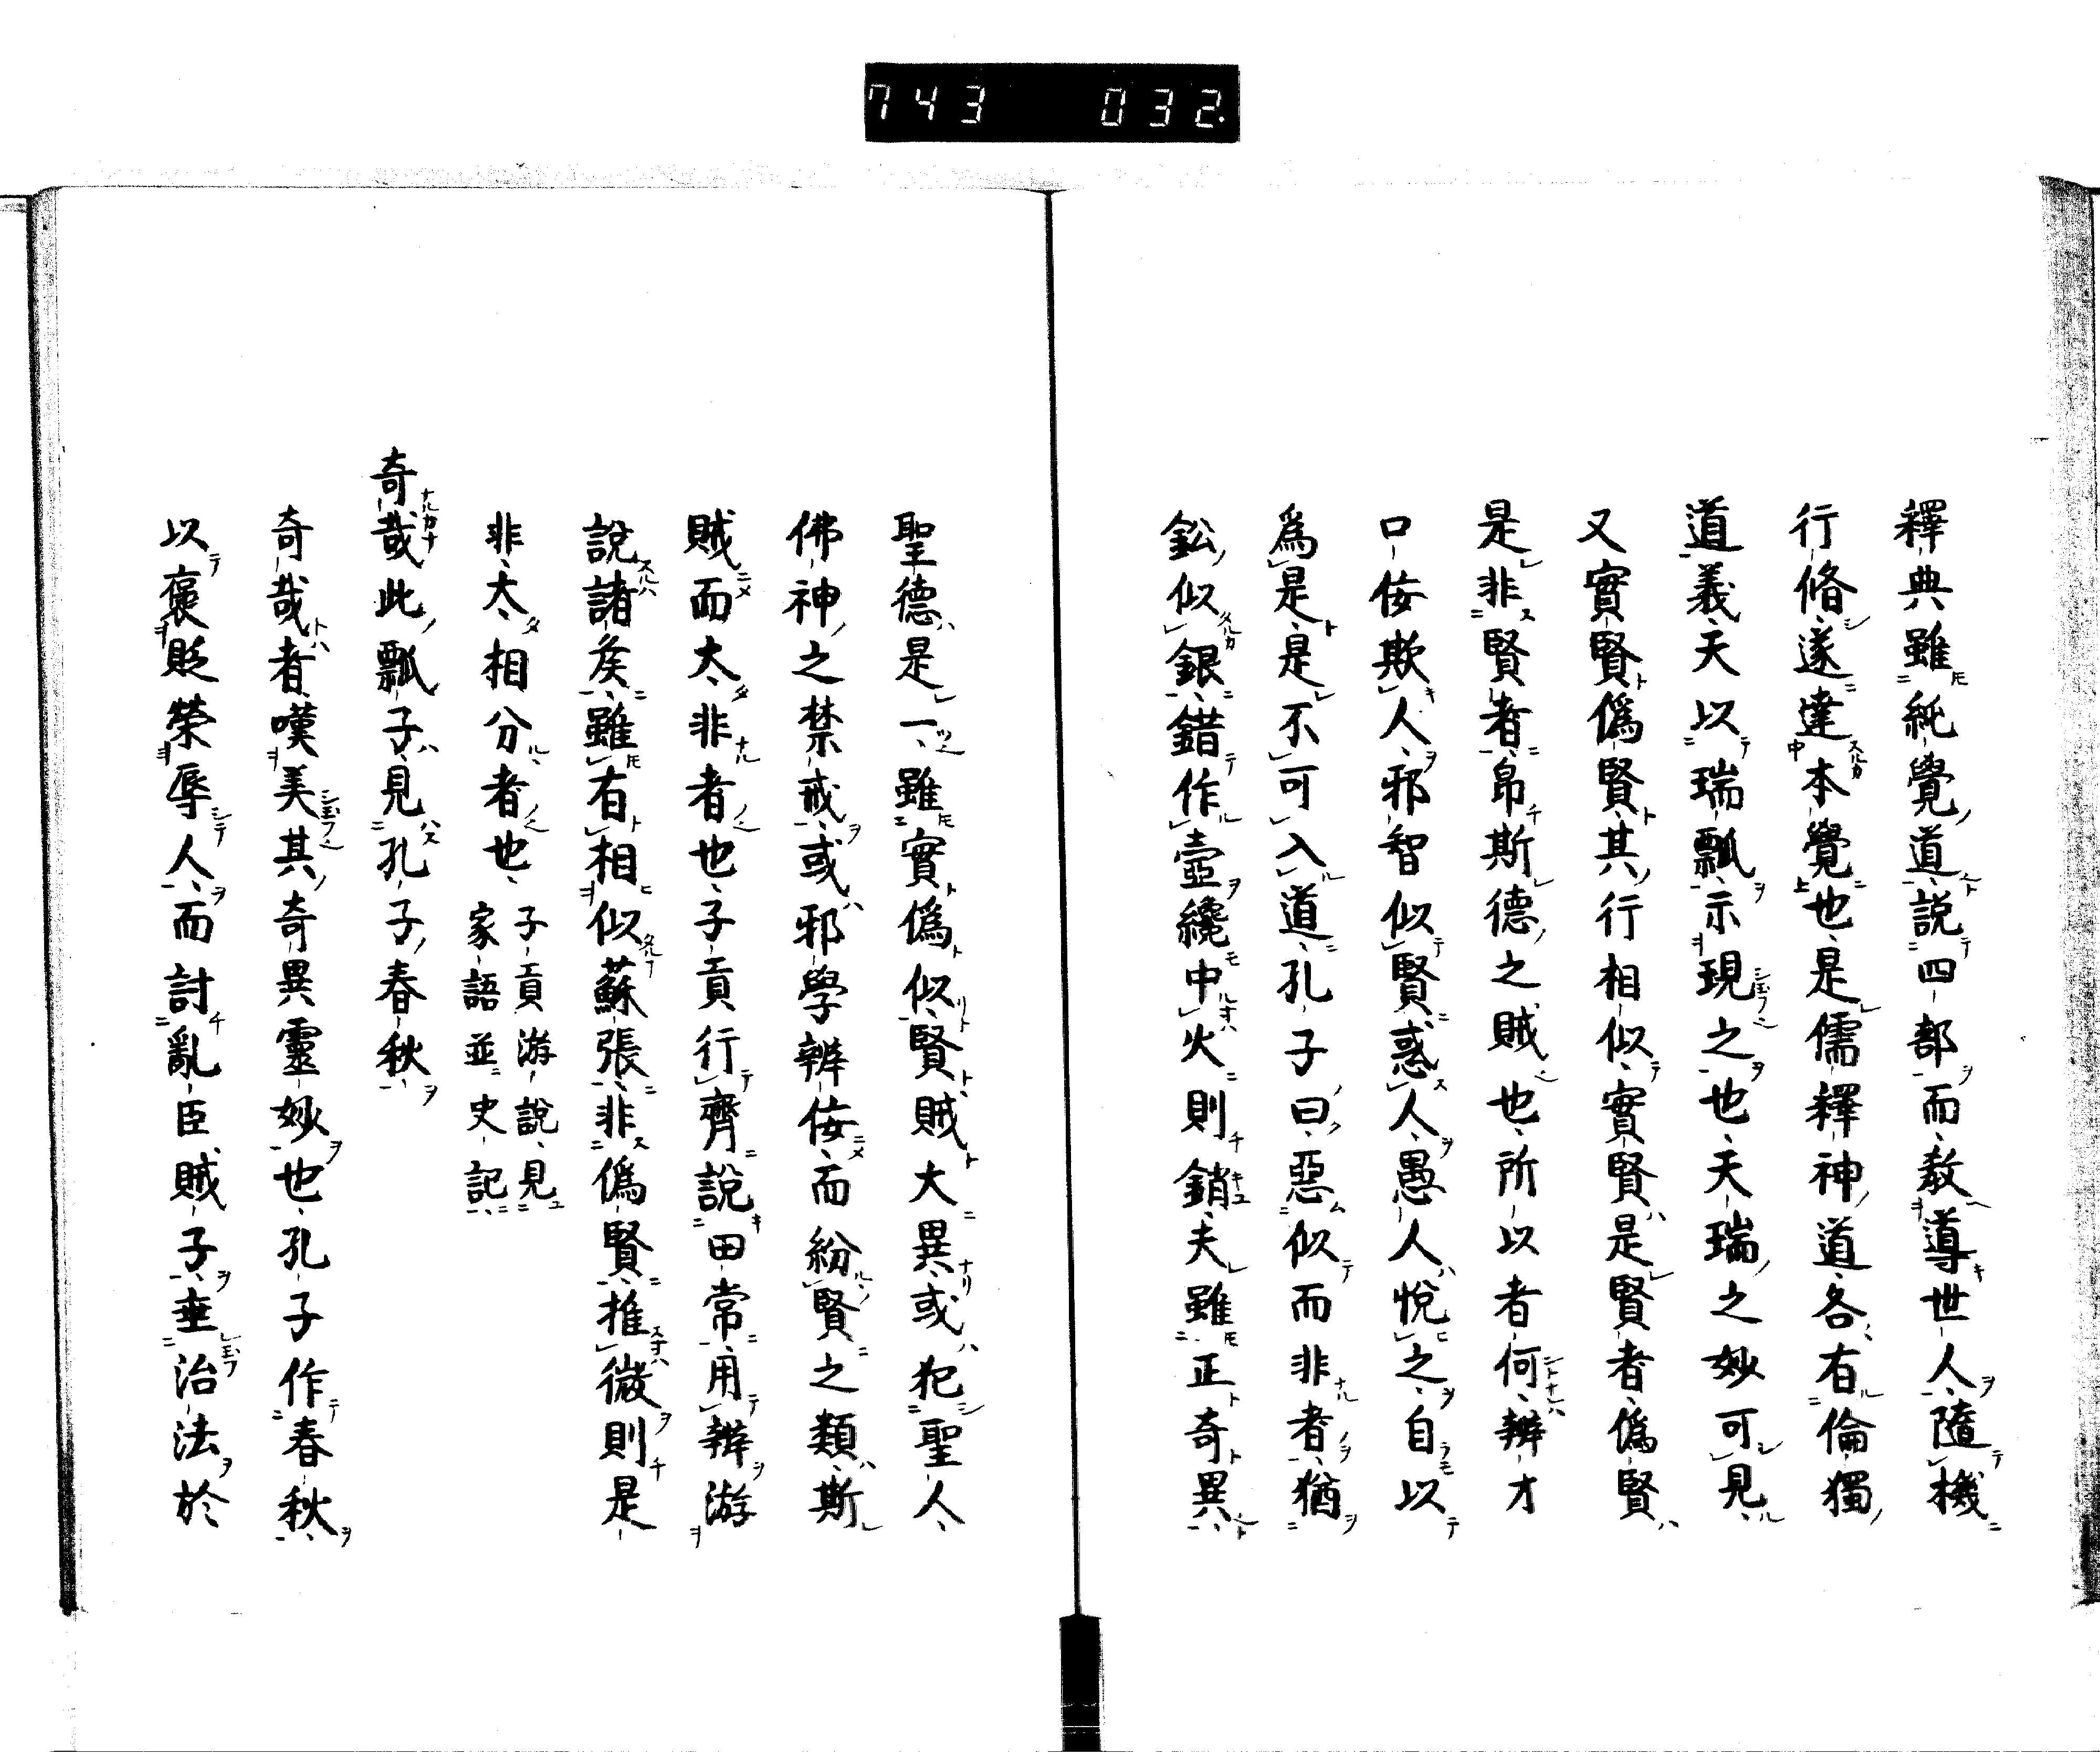 743 032.
釋典雖純覺道說四部而教導世人隨機
行脩遂達本覺也是儒釋神道各有倫獨
道義天以瑞瓢示現之也天瑞之妙可見
又實賢偽賢其行相似實賢是賢者偽賢
是非賢者帛斯德之賊也所以者何辨才
口佞欺人邪智似賢惑人愚人悅之自以
為是是不可入道孔子曰惡似而非者猶
鈆似銀錯作壺纔中火則銷夫雖正奇異
聖德是一雖實偽似賢賊大異或犯聖人
佛神之禁戒或邪學辨佞而紛賢之類斯
賊而大非者也子貢行齊說田常用辨游
說諸矦雖有相似蘇張非偽賢推微則是
非大相分者也子貢游說見
家語並史記
奇哉此瓢子見孔子春秋
奇哉者嘆美其奇異靈妙也孔子作春秋
以褒貶榮辱人而討亂臣賊子垂治法於